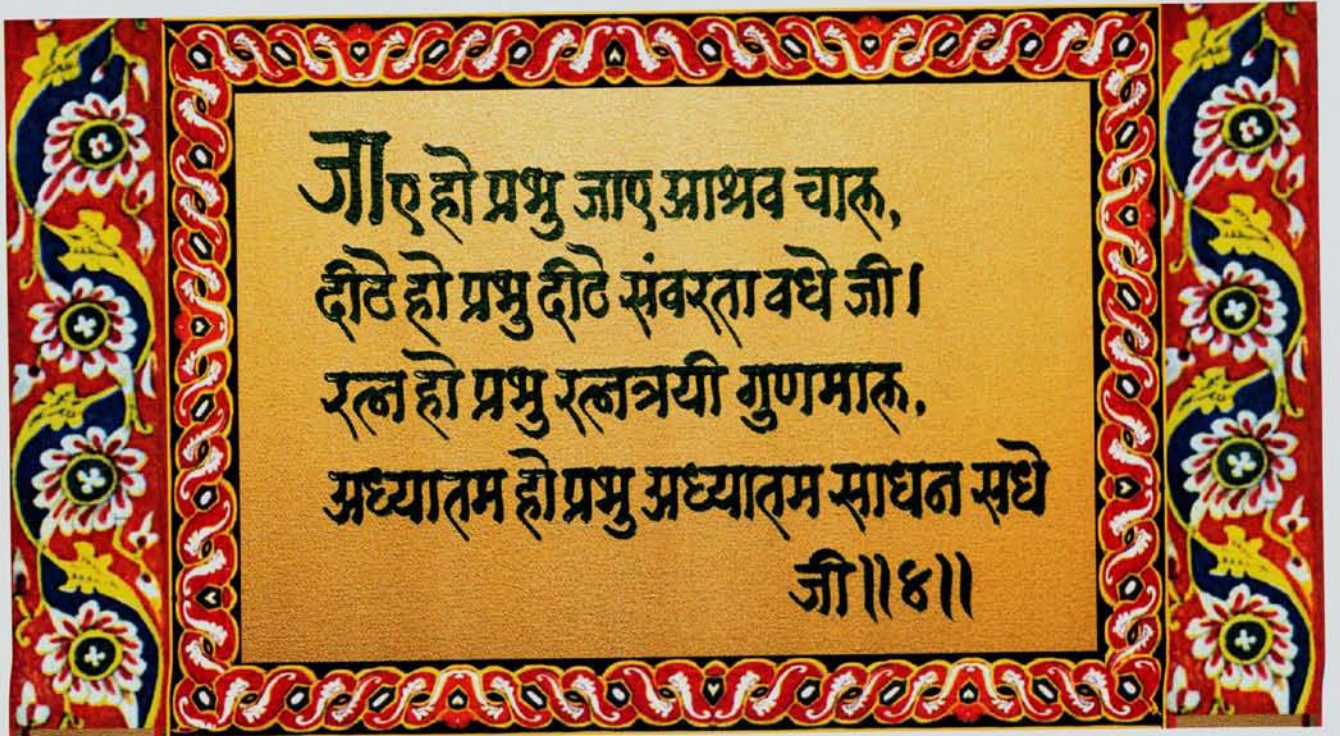 जाए हो प्रभु जाए आश्रव चाल,
दीठे हो प्रभु दीठे संवरता वधे जी।
रत्न हो प्रभु रत्नत्रयी गुणमाल,
अध्यातम हो प्रभु अध्यातम साधन सधे
जी॥४॥